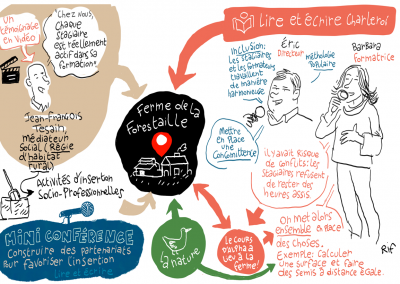 UN
témoignage
en vidéo
"Chez Nous,
chaque
stagiaire
est réellement
actif dans sa
formation."
Jean-François
médiateur
social (Régie
d'habitat
rural)
Activités d'insertion
socio-professionnelles
MINI CONFÉRENCE
Construire des partenariats
pour favoriser l'insertion
Lire et écrire
Ferme de la
Forestaille
La nature
Le cours
d'alpha a
lieu à la
ferme!
Lire et écrire Charleroi
Inclusion:
les stagiaires
et les formateurs
travaillent
de manière
harmonieuse
Éric
Directeur
méthodologie
Populaire
Barbara
Formatrice
Mettre
en place
une
concomittence
il y avait risque
de conflits: les
stagiaires refusent
de rester des
heures assis.
On met alors
ensemble en place
des choses.
Exemple: calculer
une surface et faire
des semis à distance égale.
Rif